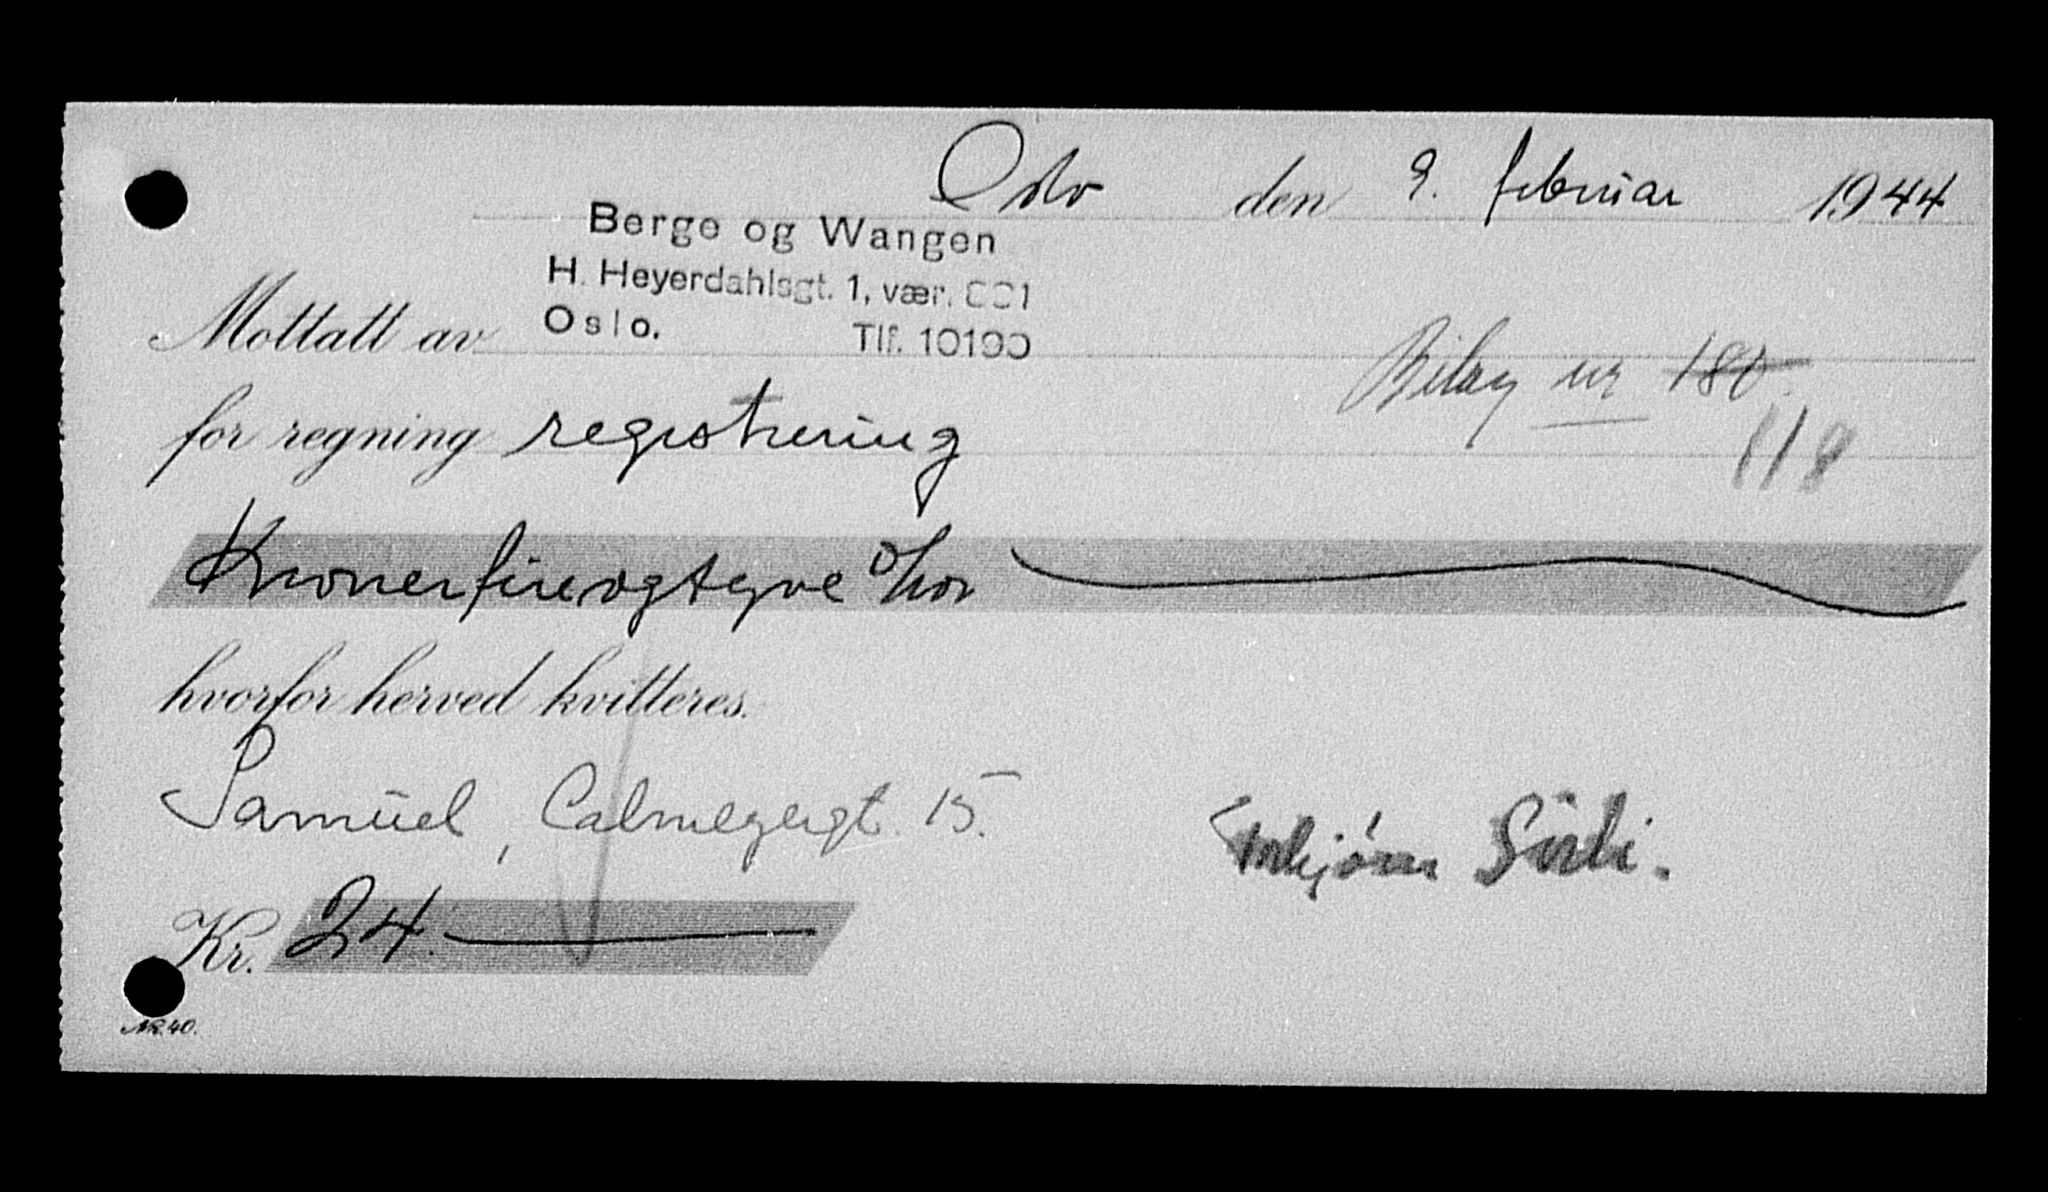 Oslo den 9. februar 1944
Berge og Wangen
H. Heyerdahlsgt. 1, vær.
Oslo. Tlf. 10190
Mottatt av
Bilag nr 180
118
for regning registrering
Kroner fireogtyve 0/100
hvorfor herved kvitteres.
Samuel, Calmeyergt. 15.
Kr. 24.
NR. 40.